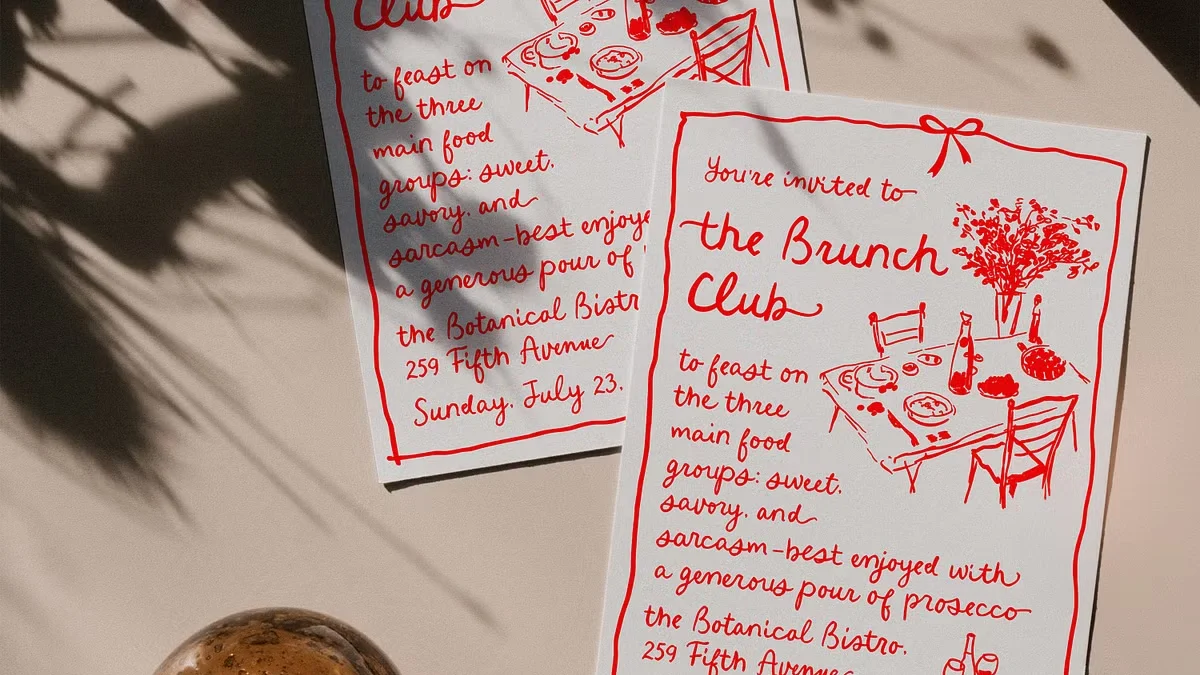 Club
to feast on
the three
main food
groups: sweet,
savory, and
sarcasm-best enjoye
a generous pour of
the Botanical Bistr
259 Fifth Avenue
Sunday, July 23,
You're invited to
the Brunch
Club
to feast on
the three
main food
groups: sweet,
savory, and
sarcasm-best enjoyed with
a generous pour of prosecco
the Botanical Bistro,
259 Fifth Avenue